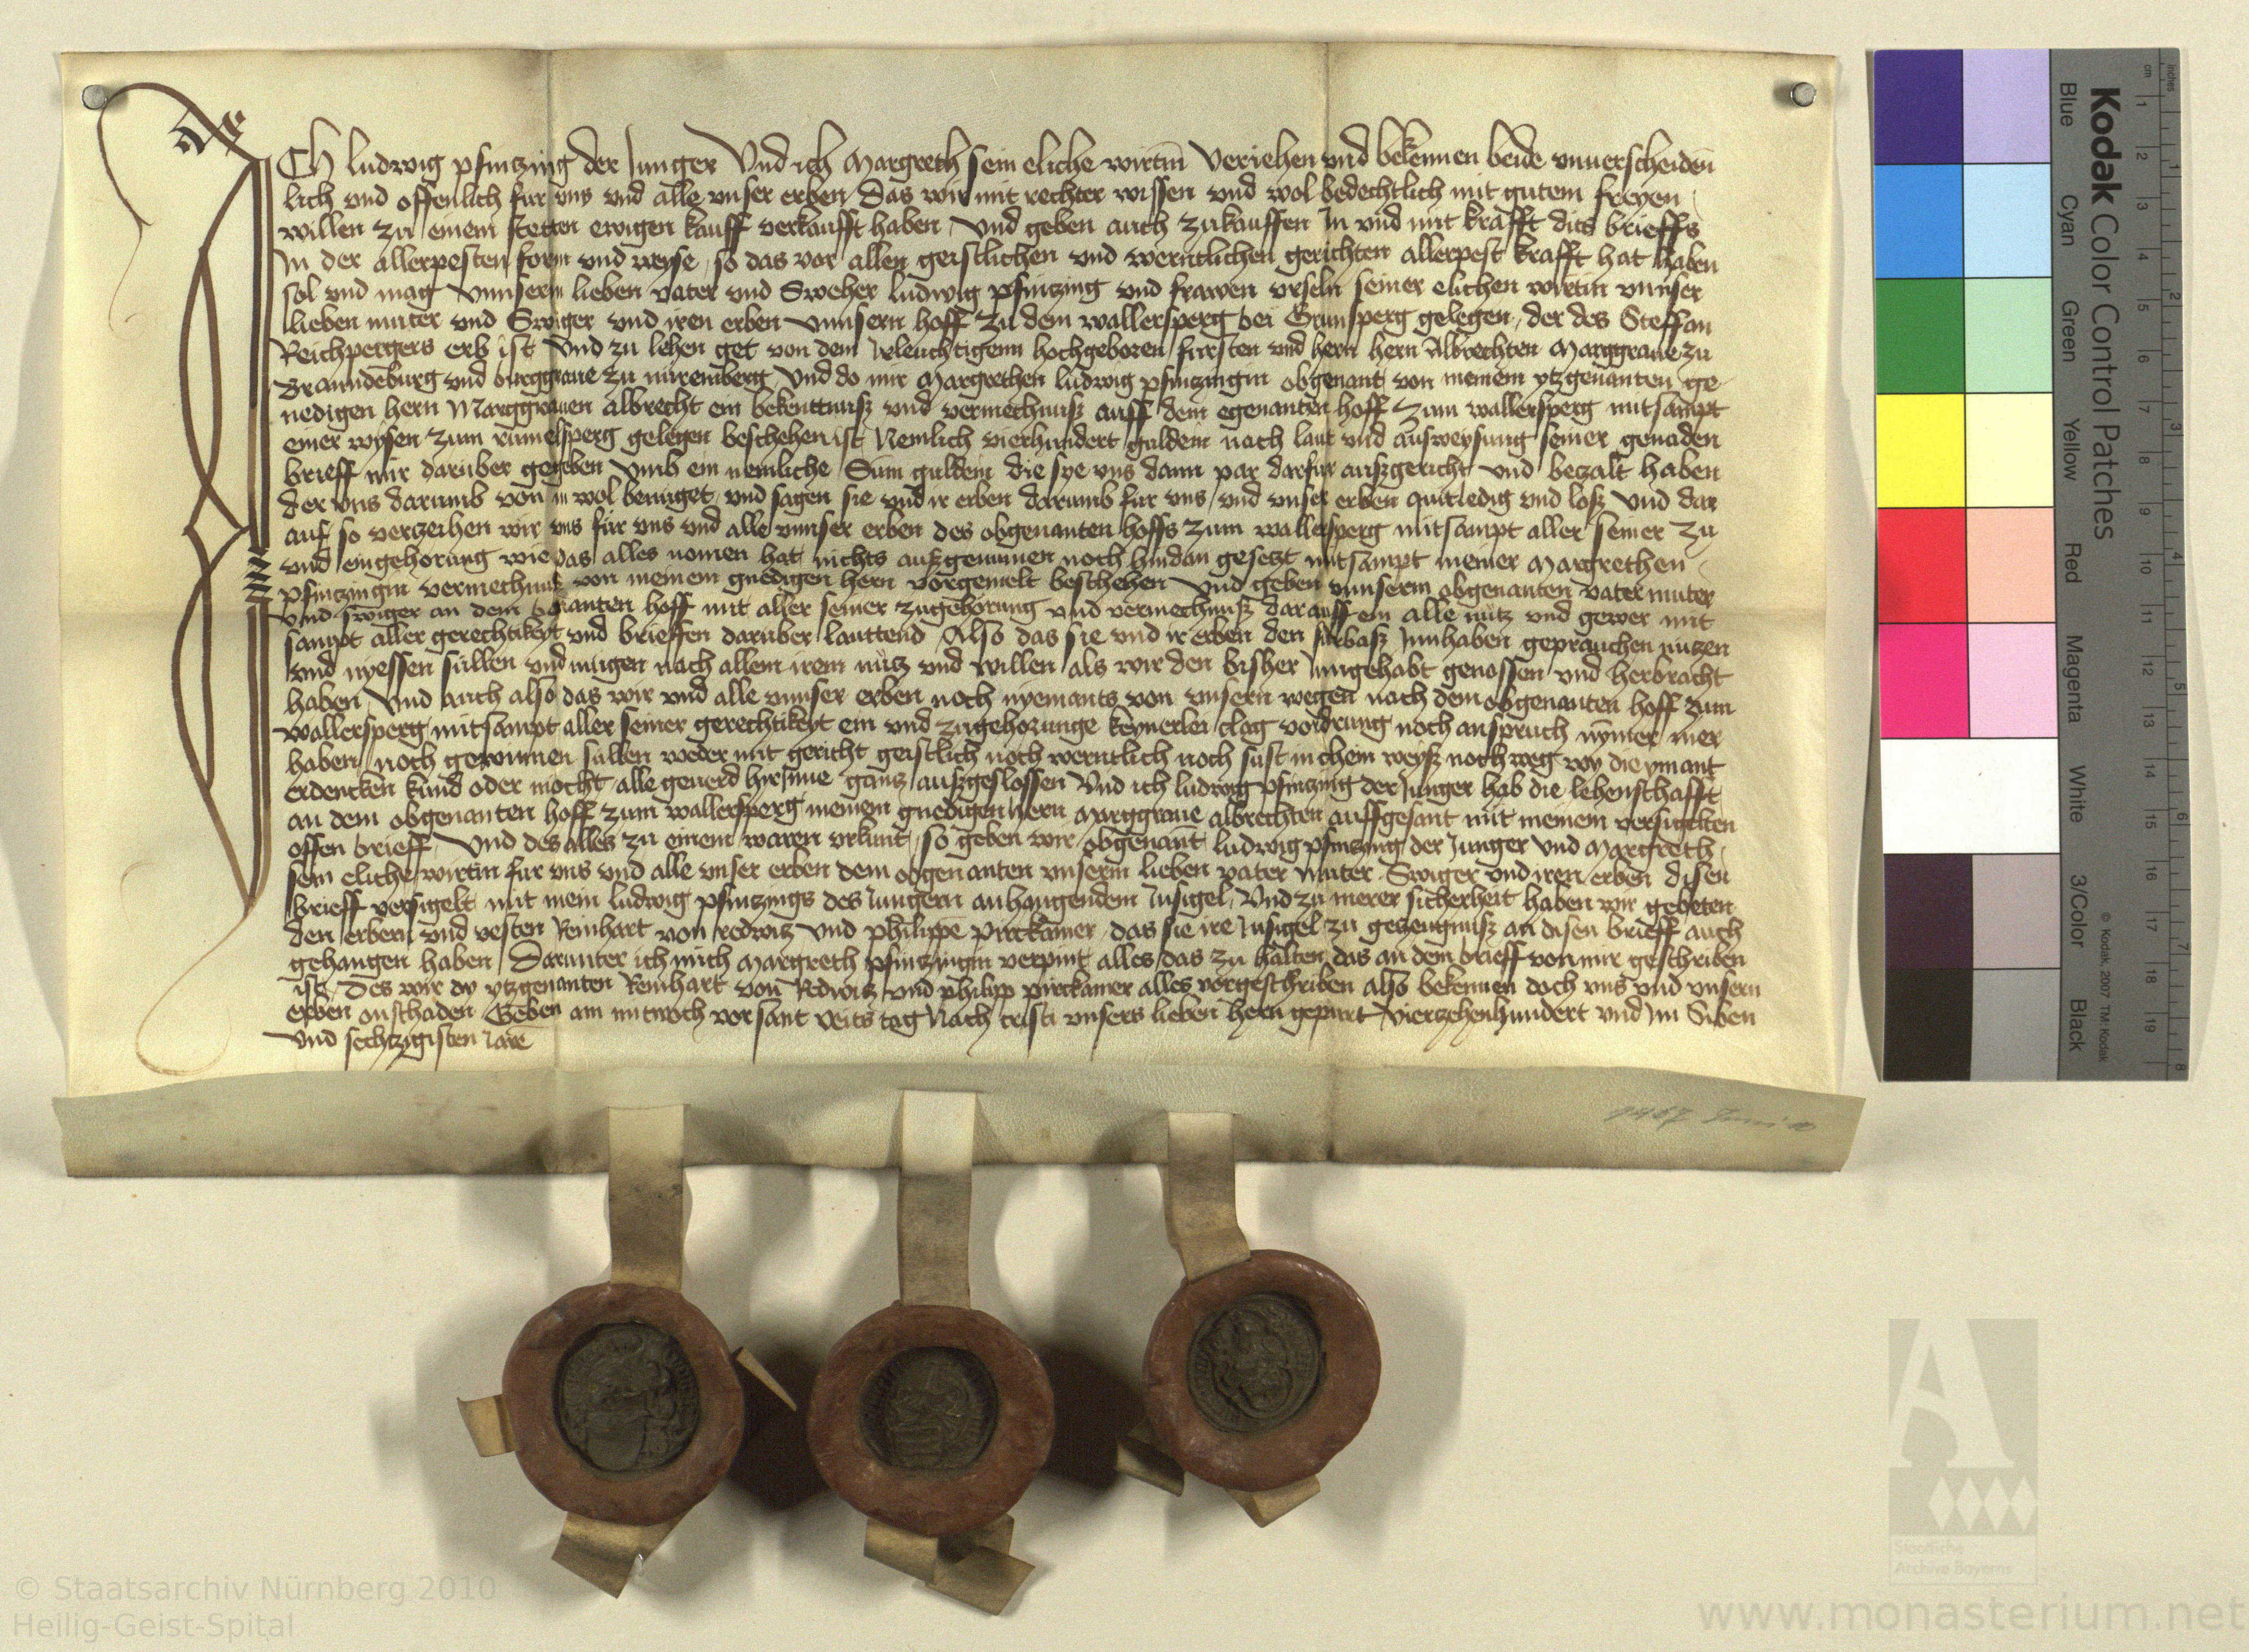 ICh ludwig pfintzing der Junger Und ich Margreth sein eliche wirtin Veriehen vnd bekennen beide vnuerscheiden
lich vnd offenlich fur vns vnd alle vnser erben Das wir mit rechter wissen vnd wol bedechtlich mit gutem freyen
willen zu einem stetten ewigen kauff verkaufft haben Vnd geben auch zukauffen In vnd mit krafft dits brieffs
In der allerpesten form vnd weyse so das vor allen geistlichen vnd werntlichen gerichten allerpest krafft hat haben
sol vnd mag Vnnserm lieben vater vnd Sweher ludwig pfintzing vnd frawen vrseln seiner elichen wirtin vnnser
lieben muter vnd Swiger vnd iren erben Vnnsern hoff zu dem wallersperg bei Grunsperg gelegen der des Steffan
Reichpergers erb ist Vnd zu lehen get von dem Irleuchtigenn hochgeboren fursten vnd hern hern Albrechten Marggraue zu
Branndeburg vnd burggraue zu nuremberg Vnd do mir Margrethen ludwig pfintzingin obgenant von meinem ytzgenanten ge
nedigen hern Marggrauen albrecht ein bekenttnuß vnd vermechnuß auff dem egenanten hoff zum wallersperg mitsampt
einer wysen zum rumelsperg gelegen beschehen ist Nemlich vierhundert guldein nach laut vnd ausweysung seiner genaden
brieff mir daruber gegeben Vmb ein nemliche Sum guldein die sye vns dann par darfur außgericht vnd bezalt haben
der vns darumb von in wol benuget vnd sagen sie vnd ir erben darumb fur vns vnd vnser erben quit ledig vnd loß Vnd dar
auf so verzeihen wir vns fur vns vnd alle vnnser erben des obgenanten hoffs zum wallersperg mitsampt aller seiner zu
vnd eingehorung wie das alles nomen hat nichts außgenumen noch hindan gesetzt mitsampt meiner Margrethen
pfintzingin vermechnuß von meinem gnedigen hern vorgemelt beschehen Vnd geben vnnserm obgenanten vater muter
Vnd swiger an dem hoff mit aller seiner zugehorung vnd vermechnuß darauff ein alle nutz vnd gewer mit
sampt aller gerechtikeyt vnd brieffen daruber lauttend Also das sie vnd ir erben den furbaß Innhaben geprauchen nutzen
vnd nyessen sullen vnd mugen nach allem irem nutz vnd willen als wir den bisher Inngehabt genossen vnd herbracht
haben Vnd auch also das wir vnd alle vnnser erben noch nyemants von vnsern wegen nach dem obgenanten hoff zum
wallersperg mitsampt aller seiner gerechtikeyt ein vnd zugehorunge keynerlei clag vordrung noch anspruch nymer mer
haben noch gewinnen sullen weder mit gericht geistlich noch werntlich noch sust in chein weyß noch weg wy die ymant
erdencken kund oder mocht alle geuerd hirInne gantz außgeslossen Vnd ich ludwig pfintzing der Junger hab die lehenschafft
an dem obgenanten hoff zum wallersperg meinem gnedigen hern Marggraue albrechten auffgesant mit meinem versigelten
offen brieff Vnd des alles zu einem waren vrkunt so geben wir obgenant ludwig pfintzing der Junger vnd Margreth
sein eliche wirtin fur vns vnd alle vnser erben dem obgenanten vnserm lieben vater Muter Swiger vnd iren erben disen
brieff versigelt mit mein ludwig pfintzings des Jungern anhangendem Insigel Vnd zu merer sicherheit haben wir gebeten
den erbern vnd vesten Reinhart von redwitz vnd philippe pirckamer das sie ire Insigel zu gezeugnuß an disen brieff auch
gehangen haben Darunter ich mich Margreth pfintzingin verpint alles das zu halten das an dem brieff von mir geschriben
ist Des wir dy ytzgenanten Reinhart von Redwitz vnd philipp pirckamer alles vorgeschriben also bekennen doch vns vnd vnsern
erben on schaden Geben am mitwoch vor sant veits tag Nach cristi vnsers lieben hern gepurt Vierzehenhundert vnd Im Siben
vnd sechtzigisten Jare
1467 Juni 10
Kodak Color Control Patches
Blue
Cyan
Green
Yellow
Red
Magenta
White
3/Color
Black
© Kodak, 2007 TM: Kodak
cm 1 2 3 4 5 6 7 8 9 10 11 12 13 14 15 16 17 18 19
inches 1 2 3 4 5 6 7 8
Staatliche
Archive Bayerns
© Staatsarchiv Nürnberg 2010
Heilig-Geist-Spital
www.monasterium.net